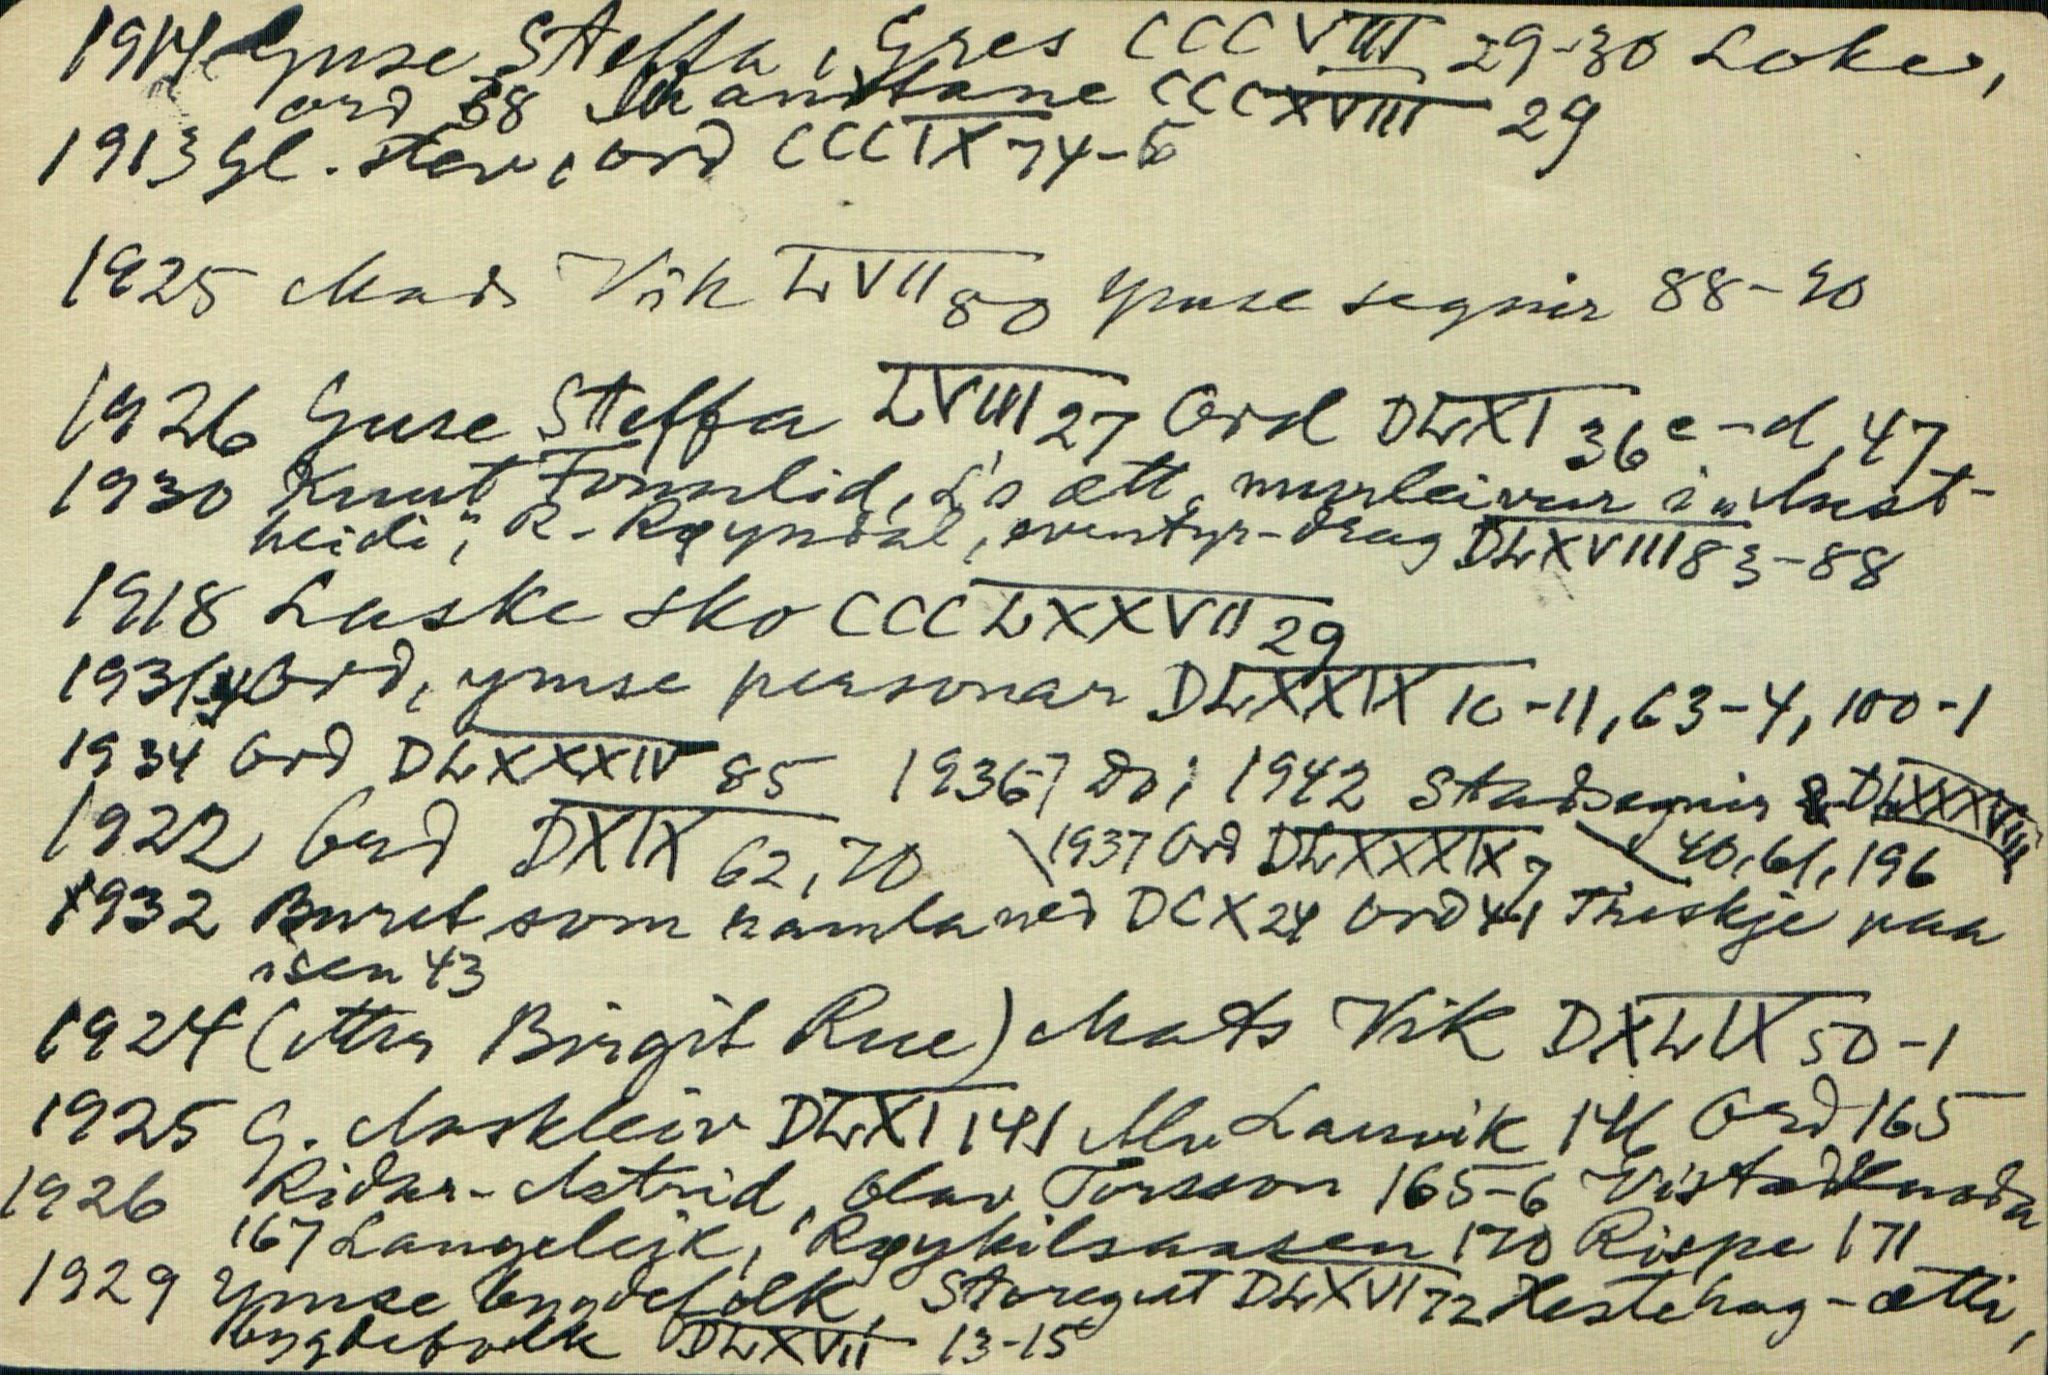 1914 Guse Steffa, Gres CCCVIII 29-30 Loke,
ord 38 CCCXVIII 29
1913 Gl. stev, ord CCCIX 74-5
1925 Mads Vik LVII 80 Ymse segnir 88-90
1926 Guse Steffa LVIII 27 Ord DLXI 36c-d, 47
1930 Knut Fonnlid, L's ætt, murleivur i "Aust-
heidi", R. Røyndal, eventyr-drag DLXVIII 83-88
1918 Laske sko CCCLXXVII 29
1931 Ord, ymse personar DLXXIX 10-11, 63-4, 100-1
1934 Ord DLXXXIV 85 1936-7 Do; 1942 Stadsegnir DLXXXVIII
1922 Ord DXIX 62, 70 \ 1937 Ord DLXXXIX 7 \ 40, 61, 196
1932 Buret som ramla ned DCX 24 Ord 41 Treskje paa
isen 43
1924 (etter Birgit Rue) Mats Vik DXLIX 50-1
1925 G. Askleiv DLXI 141 Alv Lauvik 146 Ord 165
1926 Ridar-Astrid, Olav Torsson 165-6
167 Langeleik, Røykilsaasen 170 Rispe 171
1929 Ymse bygdefolk, Storegut DLXVI 72 Hestehag-ætti,
bygdefolk DLXVII 13-15